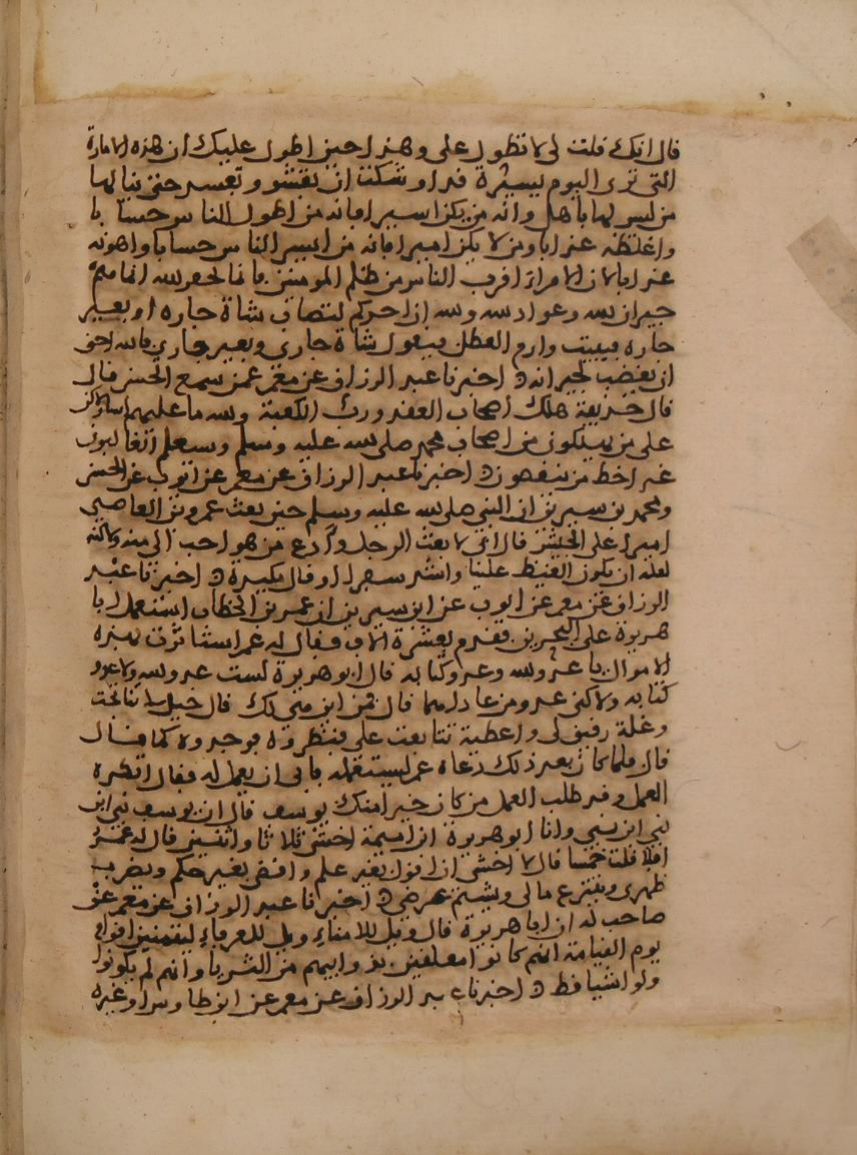 قال انك قلت لى لا تطول على وهذا حين اطول عليك ان هذه الامارة
التى ترى اليوم يسيرة قد اوشكت ان تفشو وتعسر حتى ينالها
من ليس لها باهل وانه من يكن اميرا فانه من اطول الناس حسابا
واغلظه عذابا ومن لا يكن اميرا فانه من ايسر الناس حسابا واهونه
عذابا لان الامراء اقرب الناس من ظلم المومنين فانما يخفر الله انما هم
جيران الله وعواد الله والله ان احدكم لتصاب شاة جاره او بعير
جاره فيبيت وارم العضل يقول شاة جارى وبعير جارى فالله احق
ان يغضب لجيرانه اخبرنا عبد الرزاق عن معمر عمن سمع الحسن قال
قال حذيفة هلك اصحاب العقد ورب الكعبة والله ما عليهم اسى ولاكن
على من يهلكون من اصحاب محمد صلى الله عليه وسلم وسيعلم الغالبون
غدا حظ من ينقصون اخبرنا عبد الرزاق عن معمر عن ايوب عن الحسن
ومحمد بن سيرين ان النبى صلى الله عليه وسلم حين بعث عمرو بن العاصى
اميرا على الجيش قال انى لابعث الرجل وادع من هو احب الى منه ولاكنه
لعله ان يكون ايقظ عينا واشد سفرا او قال مكيدة اخبرنا عبد
الرزاق عن معمر عن ايوب عن ابن سيرين ان عمر بن الخطاب استعمل ابا
هريرة على البحرين فقدم بعشرة الاف فقال له عمر استاثرت بهذه
الاموال يا عدو الله وعدو كتابه قال ابو هريرة لست عدو الله ولا عدو
كتابه ولاكنى عدو من عاداهما قال فمن اين هى لك قال خيل لى تناتجت
وغلة رقيق لى واعطية تتابعت على فنظروه فوجدوه كما قال
قال فلما كان بعد ذلك دعاه عمر ليستعمله فابى ان يعمل له فقال اتكره
العمل وقد طلب العمل من كان خيرا منك يوسف قال ان يوسف نبى ابن
نبى ابن نبى وانا ابو هريرة ابن اميمة اخشى ثلاثا واثنتين قال له عمر
افلا قلت خمسا قال لا اخشى ان اقول بغير علم واقضى بغير حكم ويضرب
ظهرى وينتزع مالى ويشتم عرضى اخبرنا عبد الرزاق عن معمر عن
صاحب له ان ابا هريرة قال ويل للامناء ويل للعرفاء ليتمنين اقوام
يوم القيامة انهم كانوا معلقين بذوايبهم من الثريا وانهم لم يكونوا
ولوا شيا قط اخبرنا عبد الرزاق عن معمر عن ابن طاوس او غيره